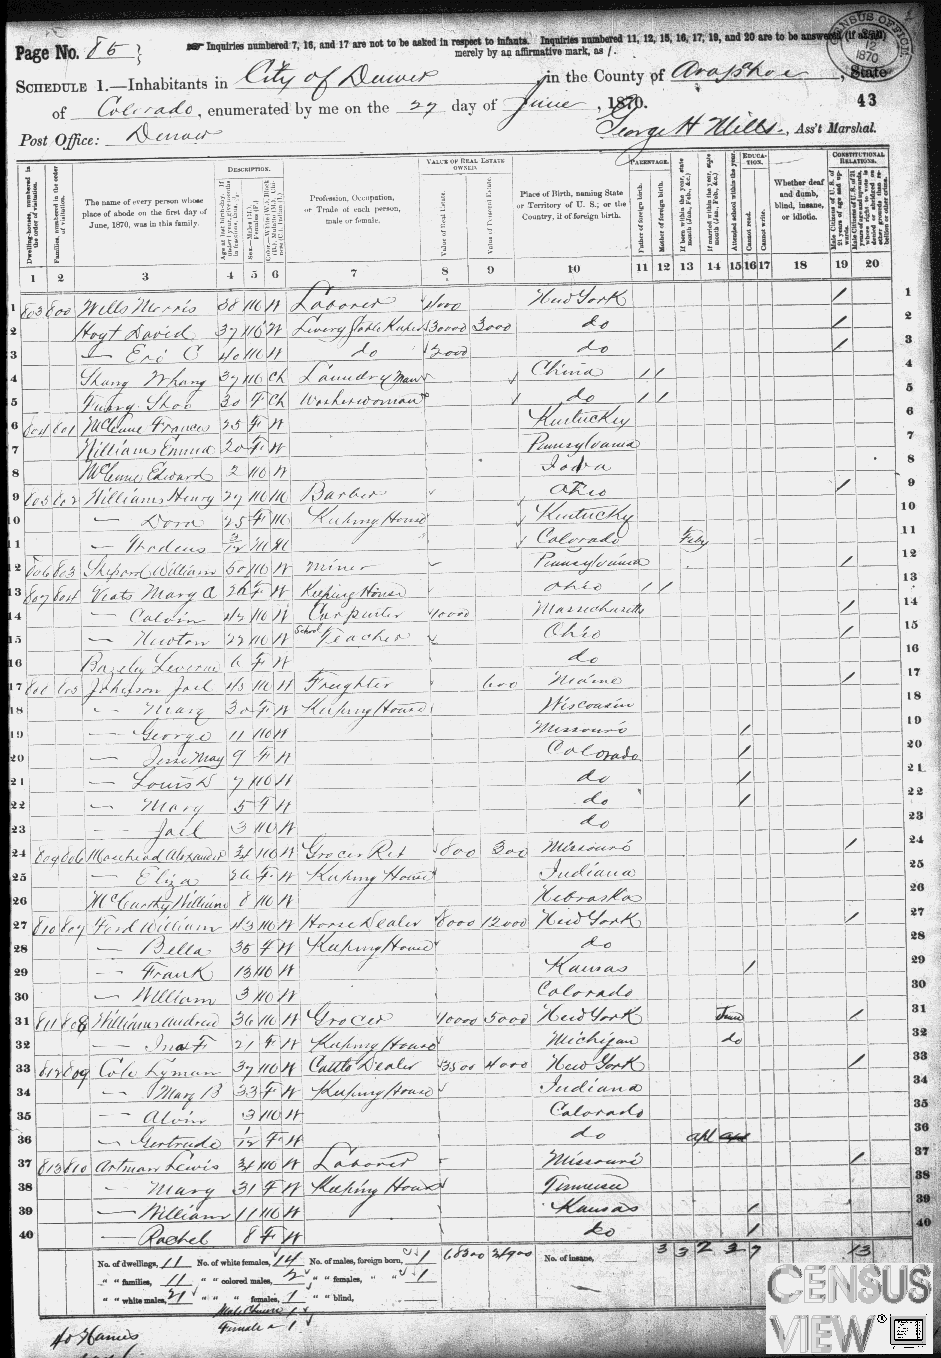 Page No. 85
Inquiries numbered 7, 16, and 17 are not to be asked in respect to infants. Inquiries numbered 11, 12, 15, 16, 17, 19, and 20 are to be answered (if at all)
merely by an affirmative mark, as /.
CENSUS OFFICE
12
1870
SCHEDULE 1.—Inhabitants in City of Denver, in the County of Arapahoe, State
of Colorado, enumerated by me on the 27 day of June, 1870.
43
Post Office: Denver
George H Mills, Ass't Marshal.
Dwelling-houses, numbered in the order of visitation.
Families, numbered in the order of visitation.
The name of every person whose place of abode on the first day of June, 1870, was in this family.
DESCRIPTION.
Profession, Occupation, or Trade of each person, male or female.
VALUE OF REAL ESTATE OWNED.
Value of Real Estate.
Value of Personal Estate.
Place of Birth, naming State or Territory of U. S.; or the Country, if of foreign birth.
PARENTAGE.
Father of foreign birth.
Mother of foreign birth.
If born within the year, state month (Jan., Feb., &c.)
If married within the year, state month (Jan., Feb., &c.)
Attended school within the year.
EDUCATION.
Cannot read.
Cannot write.
Whether deaf and dumb, blind, insane, or idiotic.
CONSTITUTIONAL RELATIONS.
1 2 3 4 5 6 7 8 9 10 11 12 13 14 15 16 17 18 19 20
1 803 800 Wells Morris 38 M W Laborer 1000 New York / 1
2 Hoyt David 37 M W Livery Stable Keeper 30000 3000 do / 2
3 — Eri C 40 M W do 2000 do / 3
4 Shang Whang 37 M Ch Laundry Man China / / 4
5 Fung Shoo 30 F Ch Washerwoman do / / 5
6 804 801 McClune Frances 25 F W Kentucky 6
7 Williams Emma 20 F W Pennsylvania 7
8 McClune Edward 2 M W Iowa 8
9 805 802 Williams Henry 27 M M Barber Ohio / 9
10 — Dora 25 F M Keeping House Kentucky 10
11 — 3/12 M M Colorado Feby 11
12 806 803 Shepard William 50 M W Miner Pennsylvania / 12
13 807 804 Viets Mary A 26 F W Keeping House Ohio / / 13
14 — Calvin 42 M W Carpenter 10000 Massachusetts / 14
15 — Newton 22 M W School Teacher Ohio / 15
16 6 F W do 16
17 805 Johnson Jail 43 M W Freighter 600 Maine / 17
18 — Mary 30 F W Keeping House Wisconsin 18
19 — George 11 M W Missouri / 19
20 — Jesse May 9 F W Colorado / 20
21 — Louis D 7 M W do / 21
22 — Mary 5 F W do / 22
23 — Jail 3 M W do 23
24 809 806 Morehead Alexander 34 M W Grocer Ret 800 300 Missouri / 24
25 — Eliza 26 F W Keeping House Indiana 25
26 McCarthy William 8 M W Nebraska 26
27 810 807 Ford William 43 M W Horse Dealer 8000 12000 New York / 27
28 — Bella 35 F W Keeping House do 28
29 — Frank 13 M W Kansas / 29
30 — William 3 M W Colorado 30
31 811 808 Williams Andrew 36 M W Grocer 10000 5000 New York June / 31
32 — Ina F 21 F W Keeping House Michigan do 32
33 812 809 Cole Lyman 37 M W Cattle Dealer 3500 4000 New York / 33
34 — Mary B 33 F W Keeping House Indiana 34
35 — Alvin 3 M W Colorado 35
36 — Gertrude 1/12 F W do Apl 36
37 813 810 Artman Lewis 34 M W Laborer Missouri / 37
38 — Mary 31 F W Keeping House Tennessee 38
39 — William 11 M W Kansas / 39
40 — Rachel 8 F W do / 40
No. of dwellings, 11 No. of white females, 14 No. of males, foreign born, 1 No. of insane,
" " families, 11 " " colored males, 2 " " females, " " 1
" " white males, 21 " " " females, 1 " " blind,
Male Chinese 1
Female " 1
3 3 2 3 7 13
40 Names
CENSUS
VIEW®